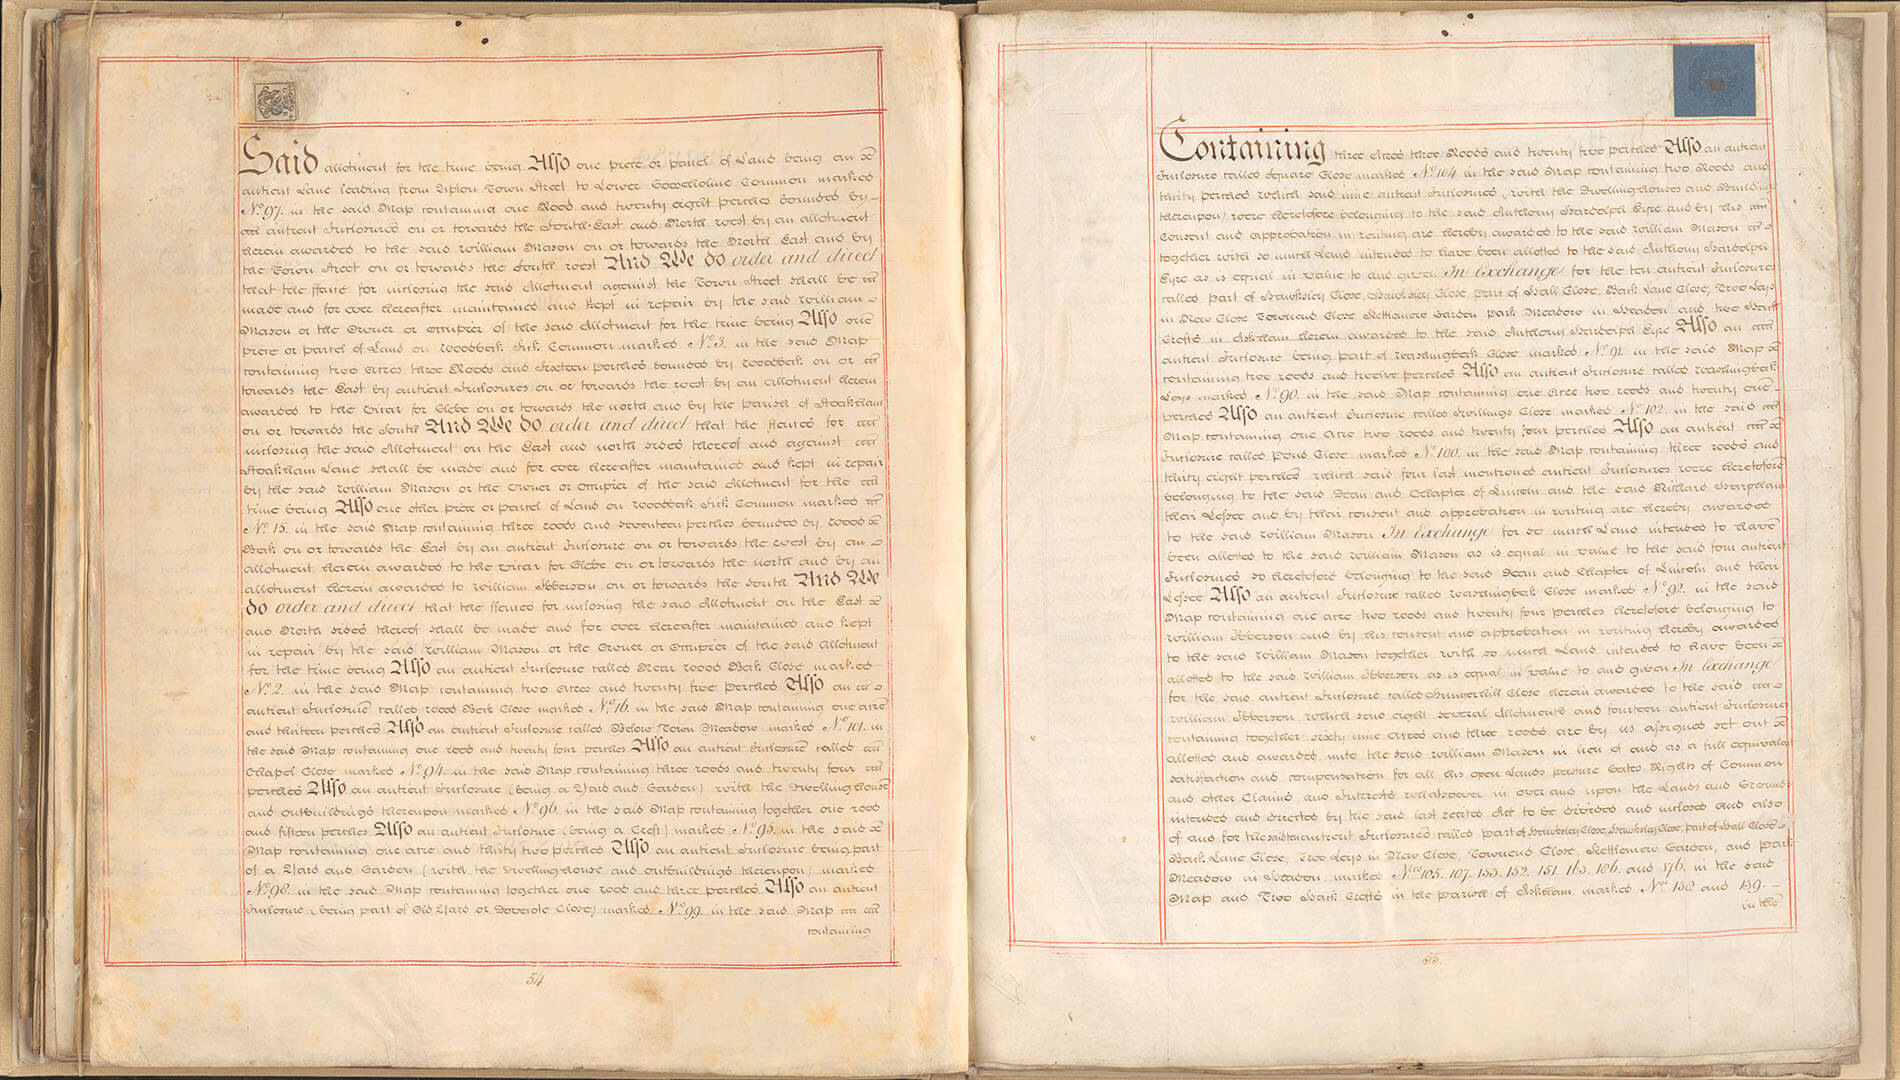 Said allotment for the time being Also one piece or parcel of Land being an
antient Lane leading from Upton Town Street to Lower Common marked
No. 97. in the said Map containing one Rood and twenty eight perches bounded by
antient Inclosures on or towards the South East and North West by an allotment
herein awarded to the said William Mason on or towards the North East and by
the Town Street on or towards the South West And We do order and direct
that the ffence for inclosing the said Allotment against the Town Street shall be
made and for ever hereafter maintained and kept in repair by the said William
Mason or the Owner or Occupier of the said Allotment for the time being Also one
piece or parcel of Land on Woodbeck Common marked No. 3. in the said Map
containing two Acres three Roods and sixteen perches bounded by Woodbeck on or
towards the East by antient Inclosures on or towards the West by an allotment herein
awarded to the Vicar for Glebe on or towards the north and by the parish of
on or towards the South And We do order and direct that the ffences for
inclosing the said Allotment on the East and north sides thereof and against
Lane shall be made and for ever hereafter maintained and kept in repair
by the said William Mason or the Owner or Occupier of the said Allotment for the
time being Also one other piece or parcel of Land on Woodbeck Common marked
No. 15. in the said Map containing three roods and seventeen perches bounded by Wood
Beck on or towards the East by an antient Inclosure on or towards the West by an
allotment herein awarded to the Vicar for Glebe on or towards the north and by an
allotment herein awarded to William Ibberson on or towards the South And We
do order and direct that the ffences for inclosing the said Allotment on the East
and North sides thereof shall be made and for ever hereafter maintained and kept
in repair by the said William Mason or the Owner or Occupier of the said Allotment
for the time being Also an antient Inclosure called Near Wood Beck Close marked
No. 2. in the said Map containing two Acres and twenty five perches Also an
antient Inclosure called Wood Beck Close marked No. 16. in the said Map containing one acre
and thirteen perches Also an antient Inclosure called Below Town Meadow marked No. 101. in
the said Map containing one rood and twenty four perches Also an antient Inclosure called
Chapel Close marked No. 94. in the said Map containing three roods and twenty four
perches Also an antient Inclosure (being a Yard and Garden) with the Dwelling house
and outbuildings thereupon marked No. 96. in the said Map containing together one rood
and fifteen perches Also an antient Inclosure (being a Croft) marked No. 95. in the said
Map containing one acre and thirty two perches Also an antient Inclosure being part
of a Yard and Garden (with the Dwelling house and outbuildings thereupon) marked
No. 98. in the said Map containing together one rood and three perches Also an antient
Inclosure (being part of Old Yard or Dovecote Close) marked No. 99. in the said Map
containing
54
Containing three Acres three Roods and twenty five perches Also an antient
Inclosure called Square Close marked No. 104. in the said Map containing two Roods and
thirty perches which said nine antient Inclosures (with the Dwelling houses and Buildings
thereupon) were heretofore belonging to the said Anthony Hardolph Eyre and by his
Consent and approbation in writing are hereby awarded to the said William Mason
together with so much Land intended to have been allotted to the said Anthony Hardolph
Eyre as is equal in value to and given In Exchange for the ten antient Inclosures
called part of Hawksley Close, Hawksley Close, part of Hall Close, Back Lane Close, Two Leys
in New Close Townend Close Kettlemore Garden part Meadow in Headon and two Back
Crofts in Askham herein awarded to the said Anthony Hardolph Eyre Also an
antient Inclosure being part of Washingbeck Close marked No. 91. in the said Map
containing two roods and twelve perches Also an antient Inclosure called Washingbeck
Leys marked No. 90. in the said Map containing one Acre two roods and twenty one
perches Also an antient Inclosure called Close marked No. 102. in the said
Map containing one Acre two roods and twenty four perches Also an antient
Inclosure called Pond Close marked No. 100. in the said Map containing three roods and
thirty eight perches which said four last mentioned antient Inclosures were heretofore
belonging to the said Dean and Chapter of Lincoln and the said Richard Harpham
their Lessee and by their consent and approbation in writing are hereby awarded
to the said William Mason In Exchange for so much Land intended to have
been allotted to the said William Mason as is equal in value to the said four antient
Inclosures so heretofore belonging to the said Dean and Chapter of Lincoln and their
Lessee Also an antient Inclosure called Washingbeck Close marked No. 92. in the said
Map containing one acre two roods and twenty four perches heretofore belonging to
William Ibberson and by his consent and approbation in writing hereby awarded
to the said William Mason together with so much Land intended to have been
allotted to the said William Ibberson as is equal in value to and given In Exchange
for the said antient Inclosure called Hungerhill Close herein awarded to the said
William Ibberson which said eight several Allotments and fourteen antient Inclosures
containing together sixty nine acres and three roods are by us assigned set out
allotted and awarded unto the said William Mason in lieu of and as a full equivalent
satisfaction and compensation for all his open Lands pasture Gates Rights of Common
and other Claims and Interests whatsoever in over and upon the Lands and Grounds
intended and directed by the said last recited Act to be divided and inclosed and also
of and for the said ten antient Inclosures called part of Hawksley Close, Hawksley Close, part of Hall Close
Back Lane Close, Two Leys in New Close, Townend Close, Kettlemore Garden, and part
Meadow in Headon marked Nos. 105. 107. 133. 152. 151. 163. 186. and 176. in the said
Map and Two Back Crofts in the parish of Askham marked Nos. 138 and 139.
in the
55.